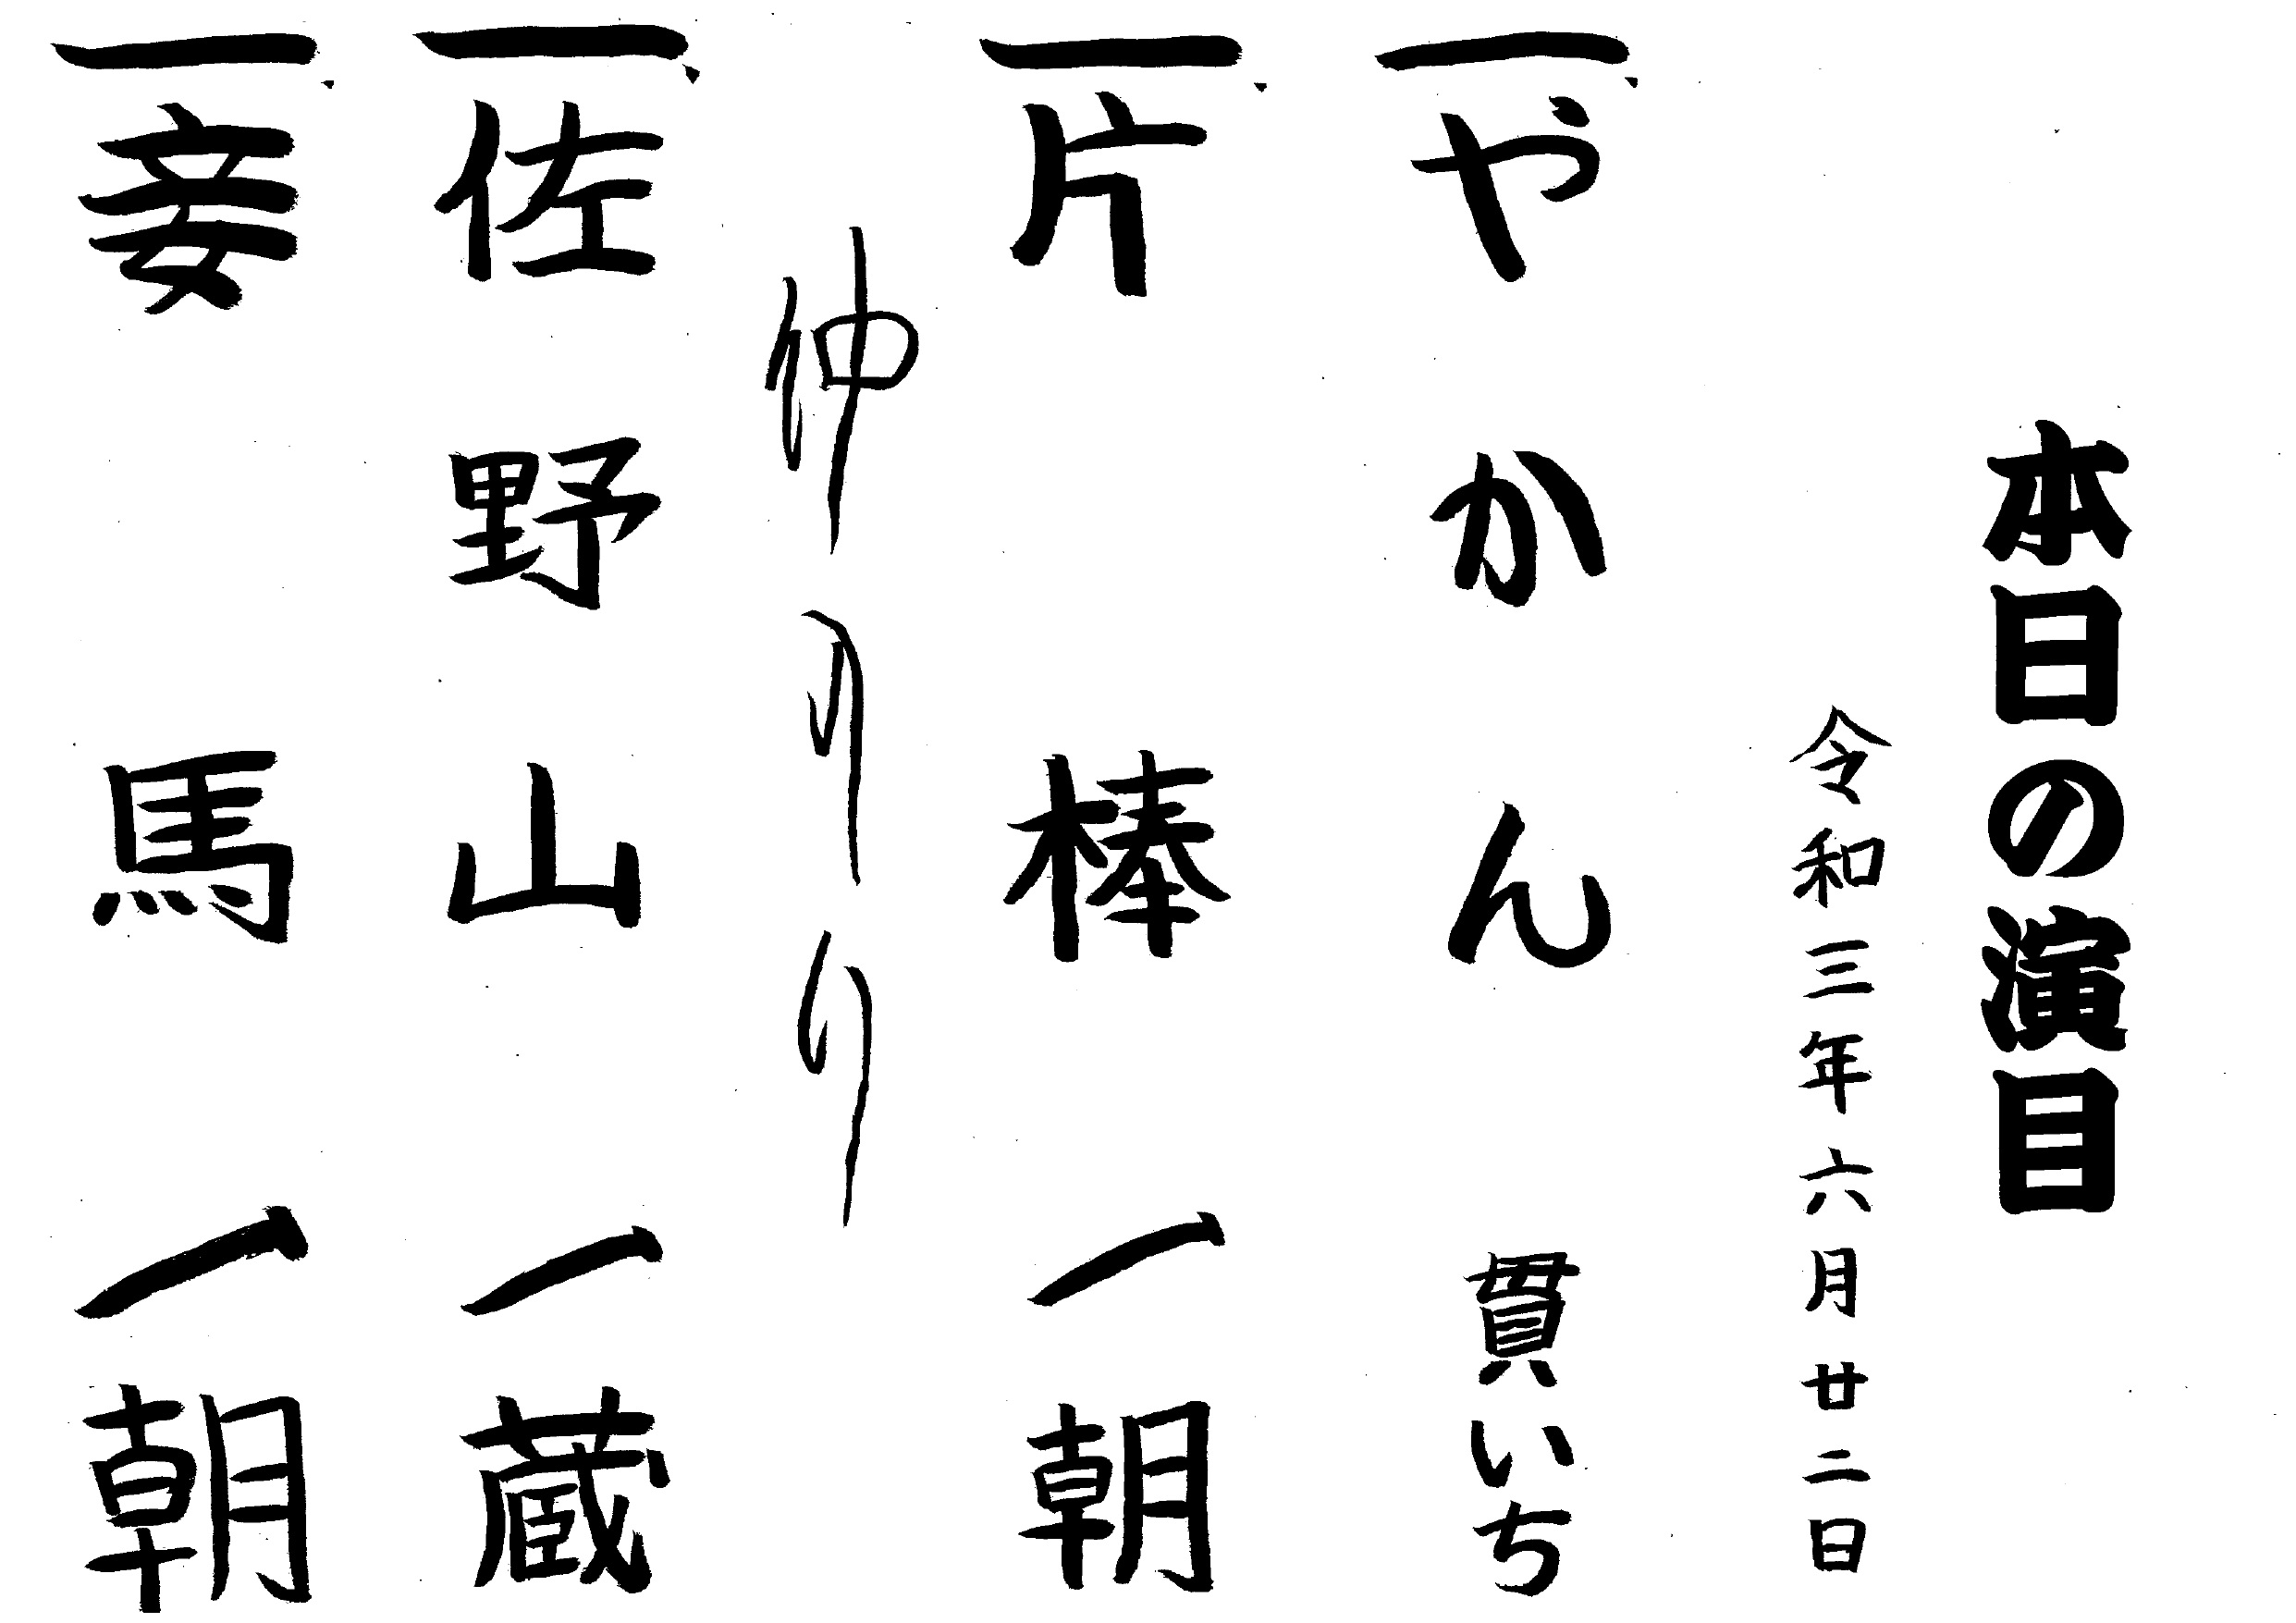 本日の演目
令和三年六月廿二日
一、やかん 貫いち
一、片棒 一朝
仲入り
一、佐野山 一蔵
一、妾馬 一朝